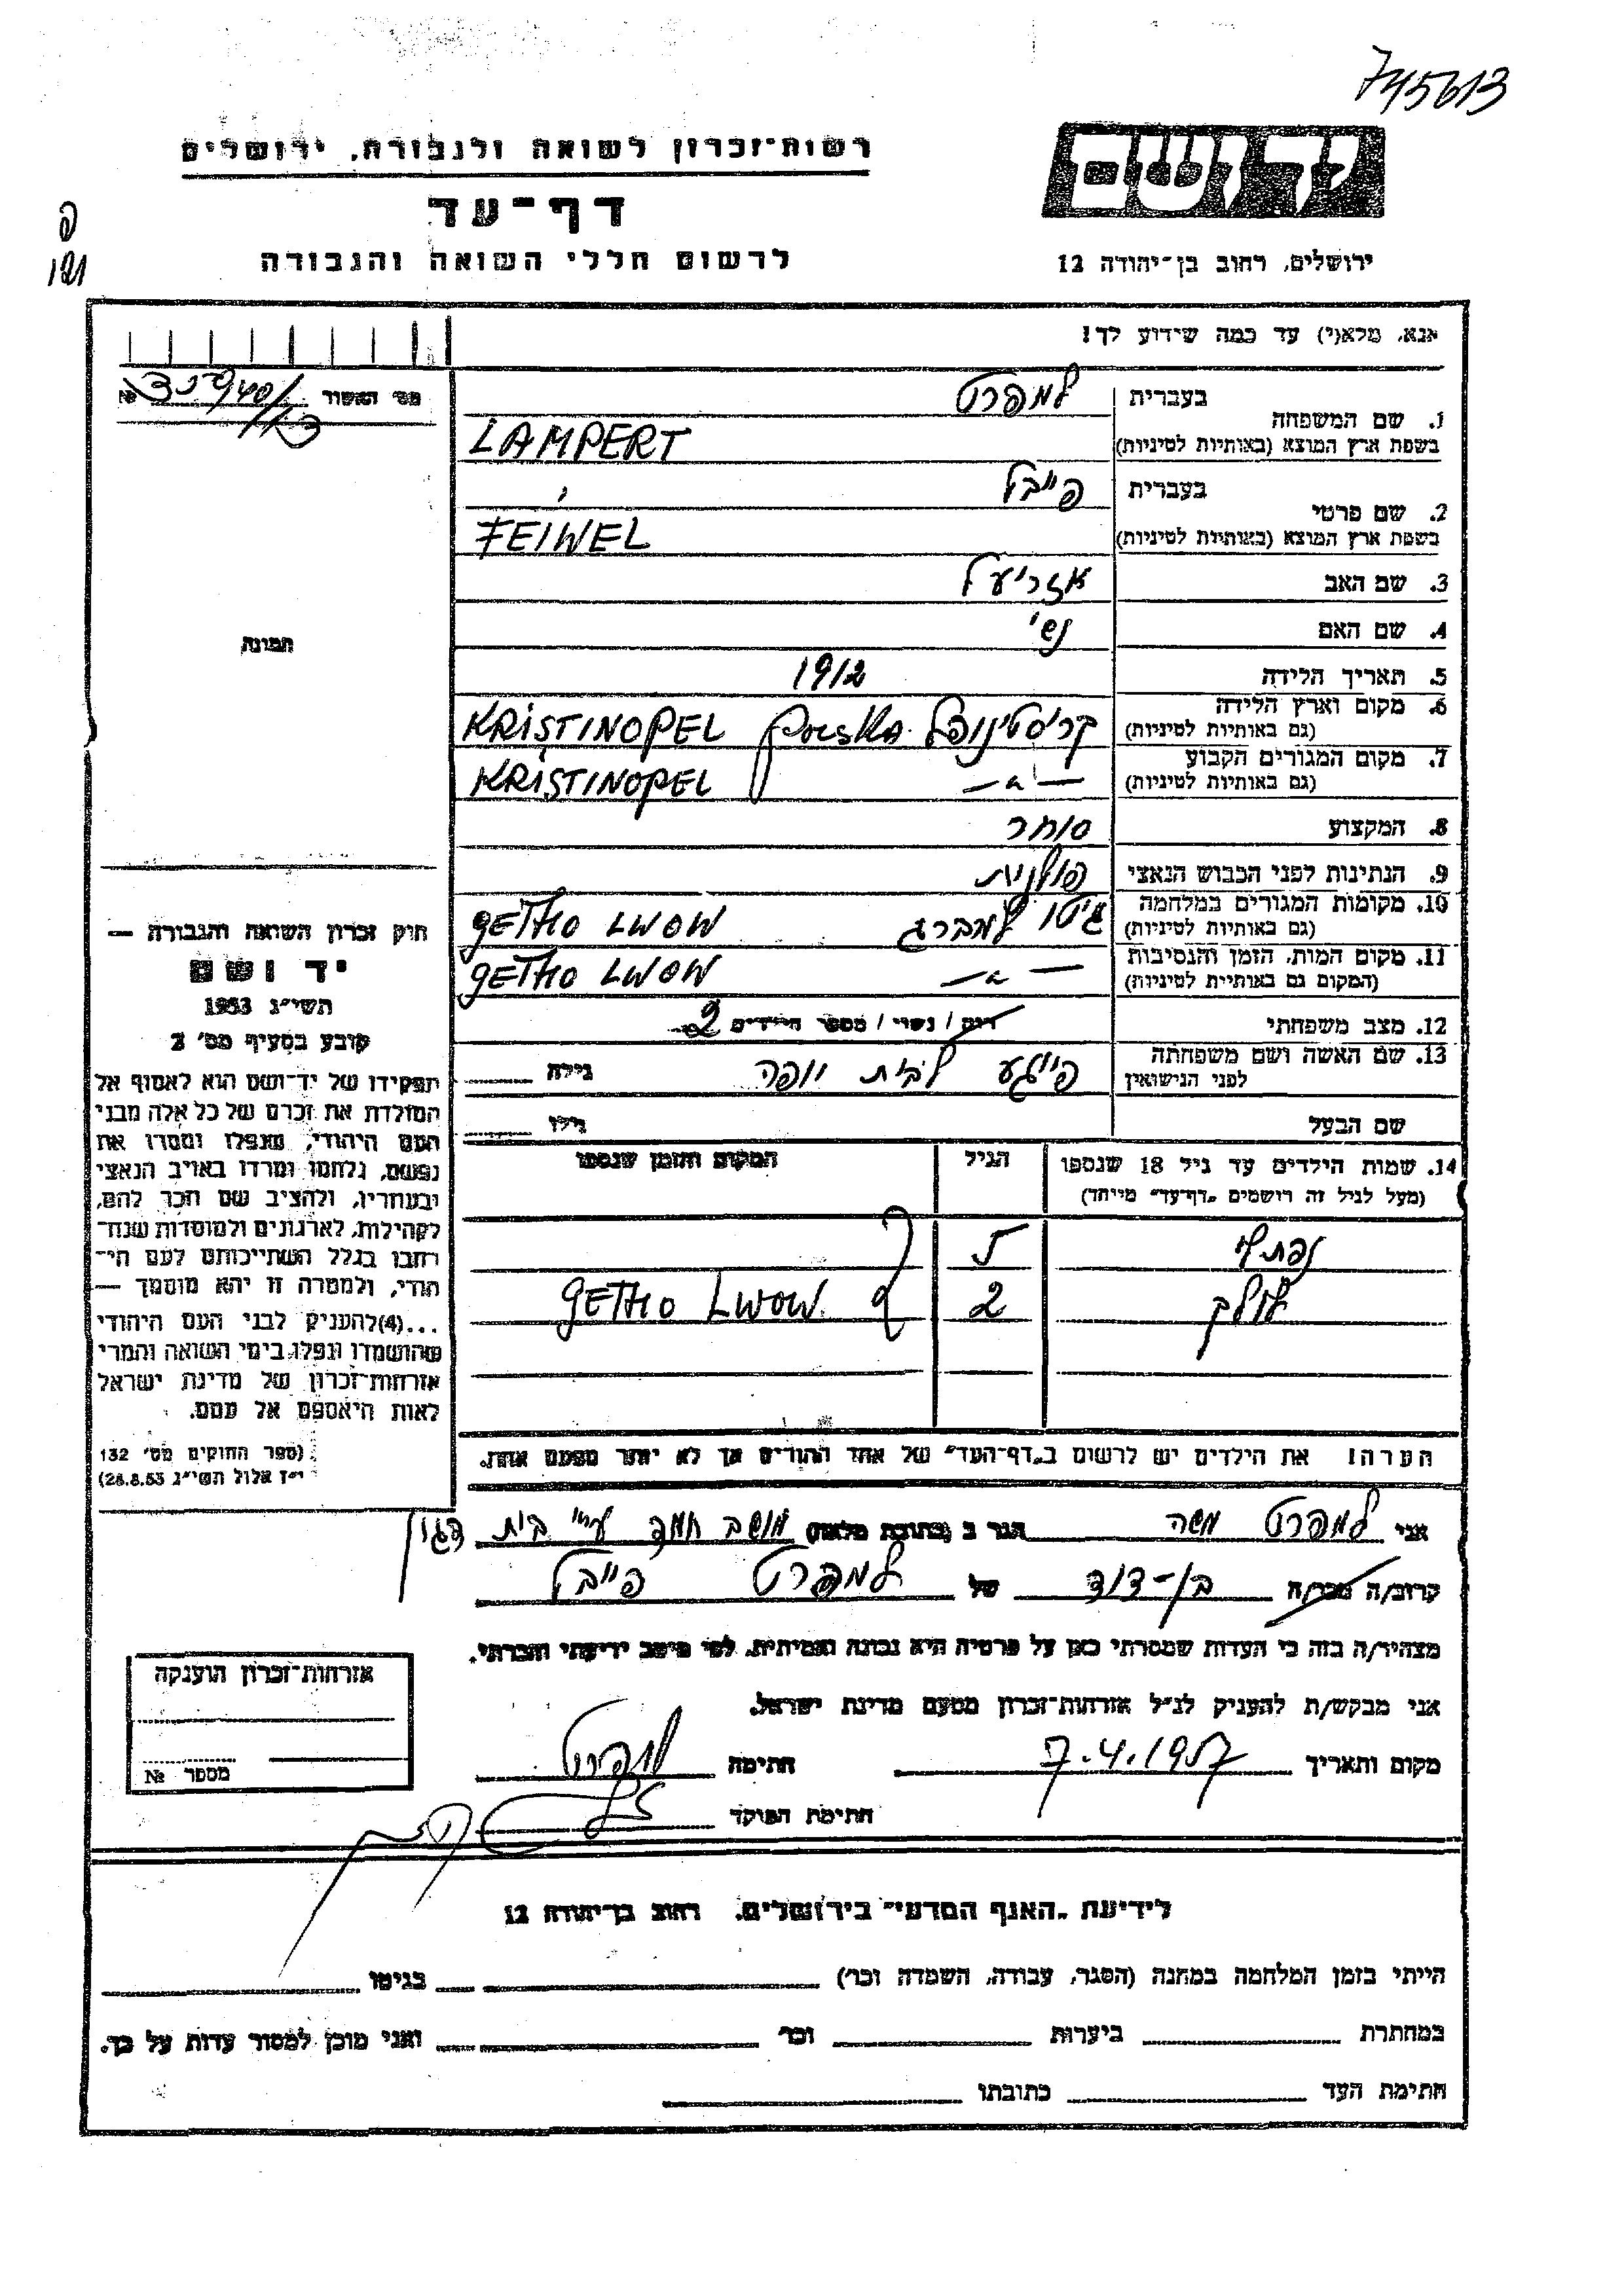 745613
רשות-זכרון לשואה ולגבורה, ירושלים
דף-עד
לרשום חללי השואה והגבורה
פ
121
יד ושם
ירושלים, רחוב בן-יהודה 12
אנא, מלא(י) עד כמה שידוע לך!
מס' האשור №
1. שם המשפחה בעברית למפרט
בשפת ארץ המוצא (באותיות לטיניות) LAMPERT
2. שם פרטי בעברית פייבל
בשפת ארץ המוצא (באותיות לטיניות) FEIWEL
3. שם האב עזריאל
4. שם האם
5. תאריך הלידה 1912
6. מקום וארץ הלידה (גם באותיות לטיניות) קריסטינופל Polska KRISTINOPEL
7. מקום המגורים הקבוע (גם באותיות לטיניות) — " — KRISTINOPEL
8. המקצוע סוחר
9. הנתינות לפני הכבוש הנאצי פולנית
10. מקומות המגורים במלחמה (גם באותיות לטיניות) גיטו למברג GETHO LWOW
11. מקום המות, הזמן והנסיבות (המקום גם באותיות לטיניות) — " — GETHO LWOW
12. מצב משפחתי רוק/ה / נשוי / מספר הילדים 2
13. שם האשה ושם משפחתה לפני הנישואין פייגע לבית יופה גילה
שם הבעל גילו
14. שמות הילדים עד גיל 18 שנספו (מעל לגיל זה רושמים "דף-עד" מיוחד) הגיל המקום והזמן שנספו
5
2 GETHO LWOW
הערה! את הילדים יש לרשום ב"דף-העד" של אחד ההורים אך לא יותר מפעם אחת.
תמונה
חוק זכרון השואה והגבורה —
יד ושם
תשי"ג 1953
קובע בסעיף מס' 2
תפקידו של יד-ושם הוא לאסוף אל
המולדת את זכרם של כל אלה מבני
העם היהודי, שנפלו ומסרו את
נפשם, נלחמו ומרדו באויב הנאצי
ובעוזריו, ולהציב שם וזכר להם,
לקהילות, לארגונים ולמוסדות שנח-
רבו בגלל השתייכותם לעם הי-
הודי, ולמטרה זו יהא מוסמך —
...(4) להעניק לבני העם היהודי
שהושמדו ונפלו בימי השואה והמרי
אזרחות-זכרון של מדינת ישראל
לאות היאספם אל עמם.
(ספר החוקים מס' 132
י"ז אלול תשי"ג 28.8.53)
אני למפרט משה הגר ב (כתובת מלאה) מושב חמד ע"י בית דגון
קרוב/ה מכר/ה בן-דוד של למפרט פייבל
מצהיר/ה בזה כי העדות שמסרתי כאן על פרטיה היא נכונה ואמיתית, לפי מיטב ידיעתי והכרתי.
אני מבקש/ת להעניק לנ"ל אזרחות-זכרון מטעם מדינת ישראל.
מקום ותאריך 7.4.1957 חתימה למפרט
חתימת הפוקד
אזרחות-זכרון הוענקה
מספר №
לידיעת "האגף המדעי" בירושלים, רחוב בן-יהודה 12
הייתי בזמן המלחמה במחנה (הסגר, עבודה, השמדה וכו') בגיטו
במחתרת ביערות וכו' ואני מוכן למסור עדות על כך.
חתימת העד כתובתו